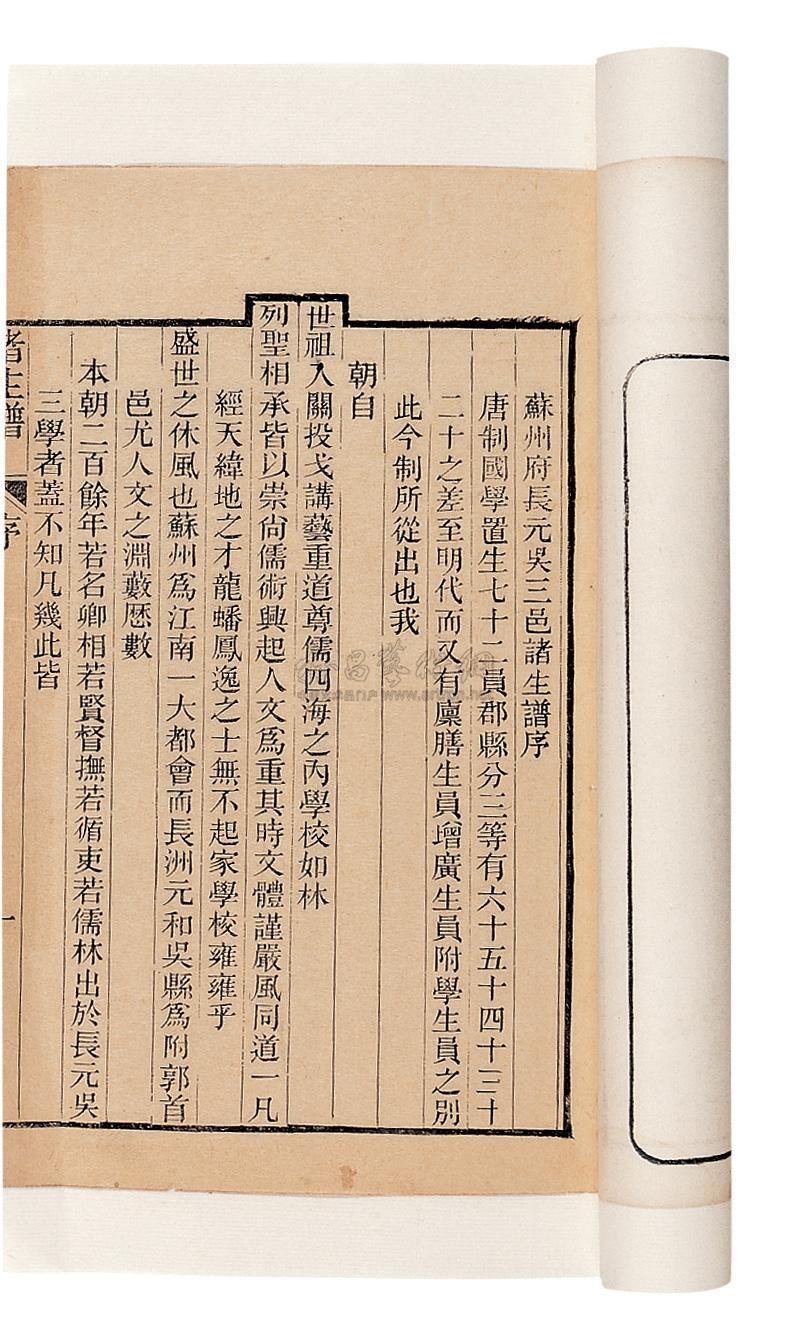 蘇州府長元吳三邑諸生譜序
唐制國學置生七十二員郡縣分三等有六十五十四十三十
二十之差至明代而又有廩膳生員增廣生員附學生員之別
此今制所從出也我
朝自
世祖入關投戈講藝重道尊儒四海之內學校如林
列聖相承皆以崇尚儒術興起人文爲重其時文體謹嚴風同道一凡
經天緯地之才龍蟠鳳逸之士無不起家學校雍雍乎
盛世之休風也蘇州爲江南一大都會而長洲元和吳縣爲附郭首
邑尤人文之淵藪歷數
本朝二百餘年若名卿相若賢督撫若循吏若儒林出於長元吳
三學者蓋不知凡幾此皆
諸生譜
序
一